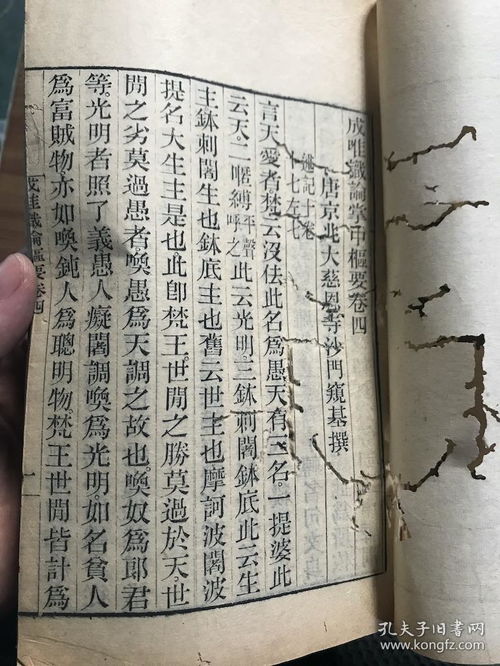 成唯識論掌中樞要卷四
唐京北大慈恩寺沙門窺基撰
述記十卷
十七左七
言天愛者梵云沒佉此名爲愚天有三名。一提婆此
云天。二㗚縛平聲呼之此云光明。三鉢剌闍鉢底此云生
主鉢剌闍生也鉢底主也舊云世主也摩訶波闍波
提名大生主是也。此卽梵王。世間之勝莫過於天。世
間之劣莫過愚者。喚愚爲天調之故也。喚奴爲郎君
等。光明者照了義愚人癡闇調喚爲光明。如名貧人
爲富賊物。亦如喚鈍人爲聰明物。梵王世間皆計爲
成唯識論樞要卷四
孔夫子旧书网
www.kongfz.com